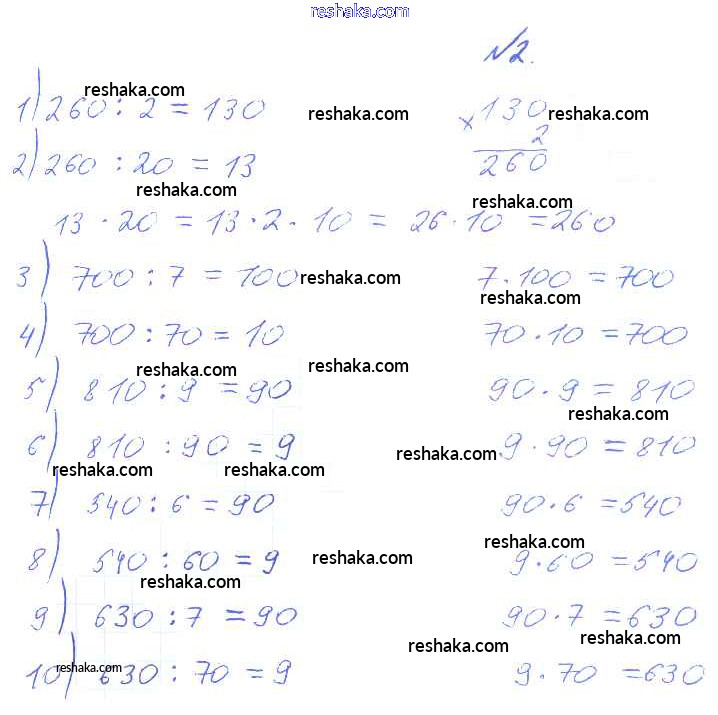 reshaka.com
№2.
reshaka.com
1) 260 : 2 = 130 reshaka.com × 130 reshaka.com
2
2) 260 : 20 = 13 260
reshaka.com reshaka.com
13 · 20 = 13 · 2 · 10 = 26 · 10 = 260
3) 700 : 7 = 100 reshaka.com 7 · 100 = 700
reshaka.com
4) 700 : 70 = 10 70 · 10 = 700
reshaka.com reshaka.com
5) 810 : 9 = 90 90 · 9 = 810
reshaka.com
6) 810 : 90 = 9 reshaka.com 9 · 90 = 810
reshaka.com reshaka.com
7) 540 : 6 = 90 90 · 6 = 540
reshaka.com
8) 540 : 60 = 9 reshaka.com 9 · 60 = 540
reshaka.com
9) 630 : 7 = 90 90 · 7 = 630
reshaka.com reshaka.com
10) 630 : 70 = 9 9 · 70 = 630
reshaka.com